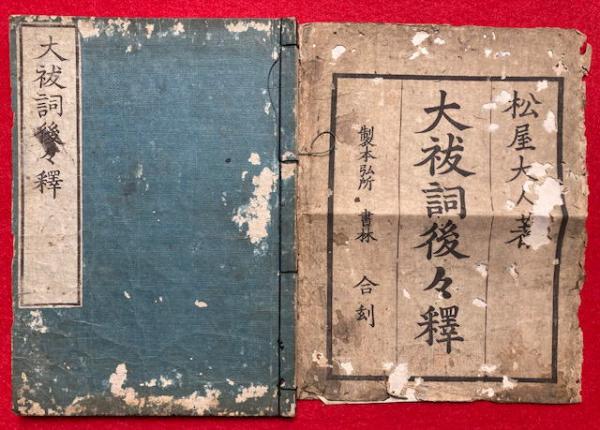 大祓詞後々釋
松屋大人著
大祓詞後々釋
製本弘所 書林 合刻